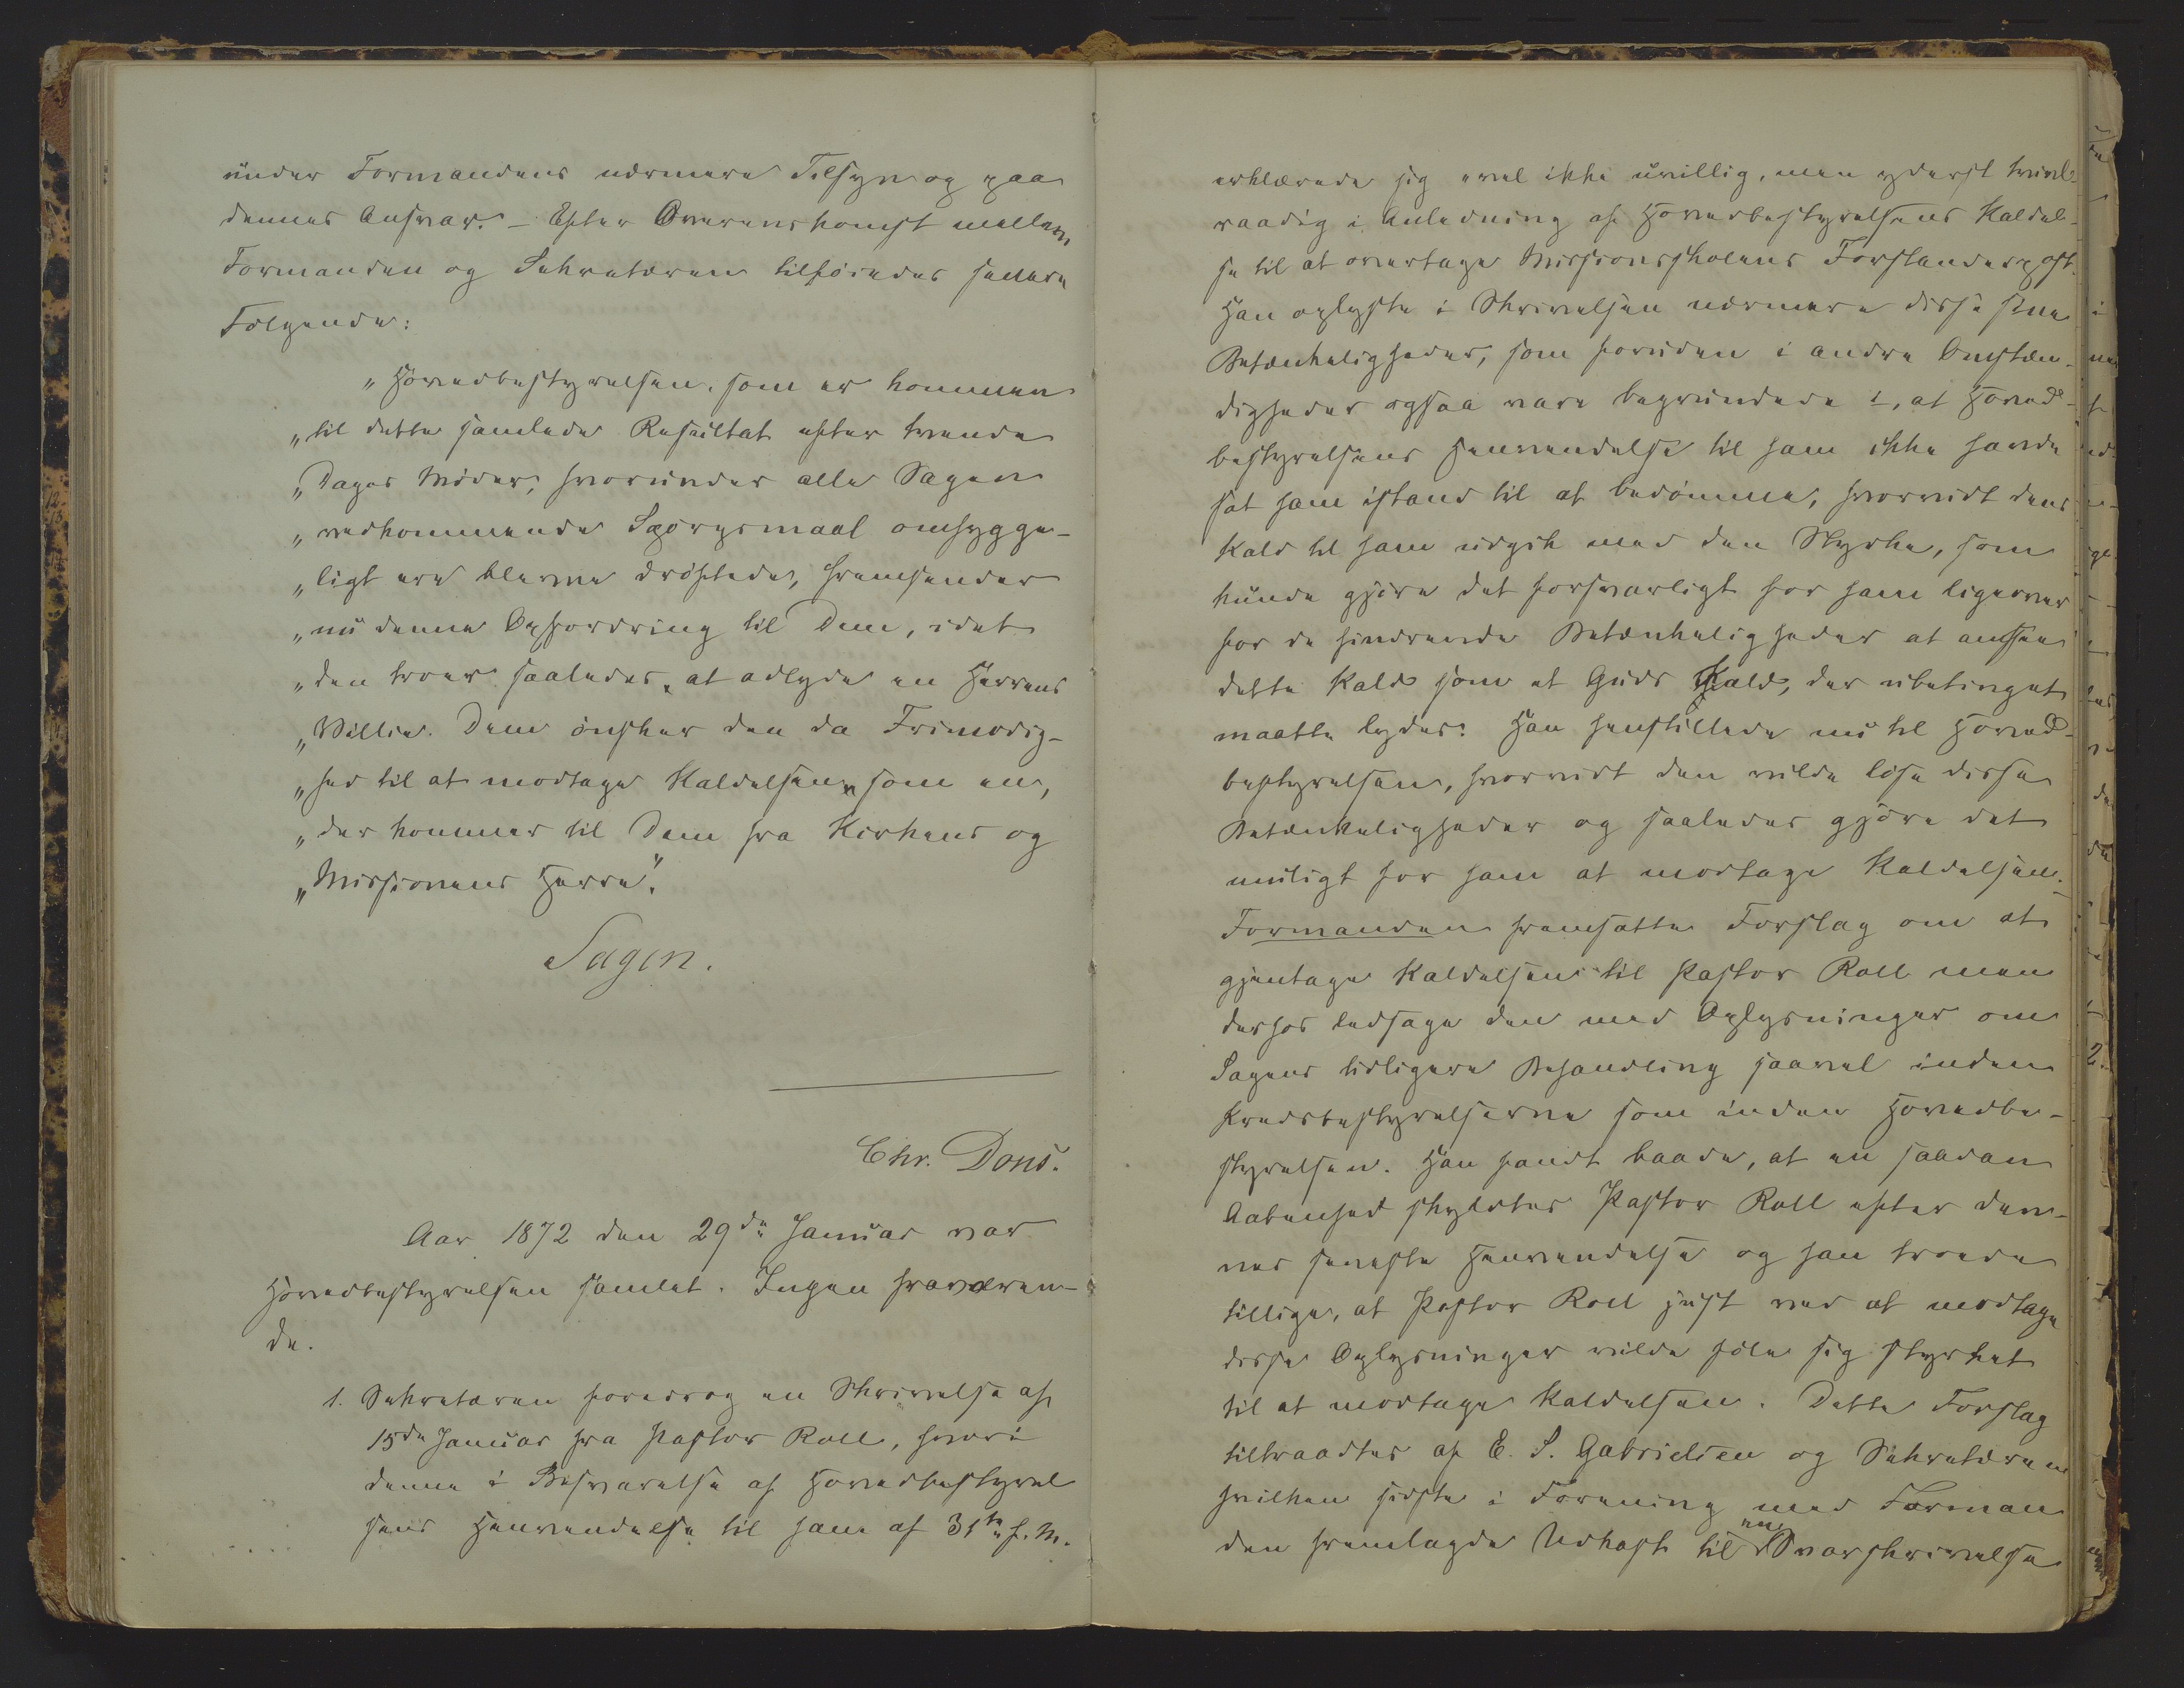 under Formandens nærmere Tilsyn og paa
dennes Ansvar. – Efter Overenskomst mellem
Formanden og Sekretæren tilføiedes senere
Følgende:
„Hovedbestyrelsen, som er kommen
„til dette samlede Resultat efter tvende
„Dages Møder, hvorunder alle Sagen
„vedkommende Spørgsmaal omhygge-
„ligt ere blevne drøftede, fremsender
„nu denne Opfordring til Dem, idet
„den troer saaledes at adlyde en Herrens
„Villie. Dem ønsker den da Frimodig-
„hed til at modtage Kaldelsen som en,
„der kommer til Dem fra Kirkens og
„Missionens Herre”.
Sagen.
Chr. Dons.
Aar 1872 den 29de Januar var
Hovedbestyrelsen samlet. Ingen fraværen-
de.
1. Sekretæren foredrog en Skrivelse af
15de Januar fra Pastor Roll, hvori
denne i Besvarelse af Hovedbestyrel
sens Henvendelse til ham af 31te f. M.
erklærede sig vel ikke uvillig, men yderst tvivl-
raadig i Anledning af Hovedbestyrelsens Kaldel-
se til at overtage Missionsskolens Forstanderpost.
Han oplyste i Skrivelsen nærmere disse sine
Betænkeligheder, som foruden i andre Omstæn-
digheder ogsaa vare begrundede i, at Hoved-
bestyrelsens Henvendelse til ham ikke havde
sat ham istand til at bedømme, hvorvidt dens
Kald til ham udgik med den Styrke, som
kunde gjøre det forsvarligt for ham ligeover
for de hindrende Betænkeligheder at ansee
dette Kald som et Guds Kald, der ubetinget
maatte lydes. Han henstillede nu til Hoved-
bestyrelsen, hvorvidt den vilde løse disse
Betænkeligheder og saaledes gjøre det
muligt for ham at modtage Kaldelsen.
Formanden fremsatte Forslag om at
gjentage Kaldelsen til Pastor Roll men
derhos ledsage den med Oplysninger om
Sagens tidligere Behandling saavel inden
Kredsbestyrelserne som inden Hovedbe-
styrelsen. Han fandt baade, at en saadan
Aabenhed skyldtes Pastor Roll efter den-
nes seneste Henvendelse og han troede
tillige, at Pastor Roll just ved at modtage
disse Oplysninger vilde føle sig styrket
til at modtage Kaldelsen. Dette Forslag
tiltraadtes af E. S. Gabrielsen og Sekretæren
hvilken sidste i Forening med Forman
den fremlagde Udkast til en Svarskrivelse